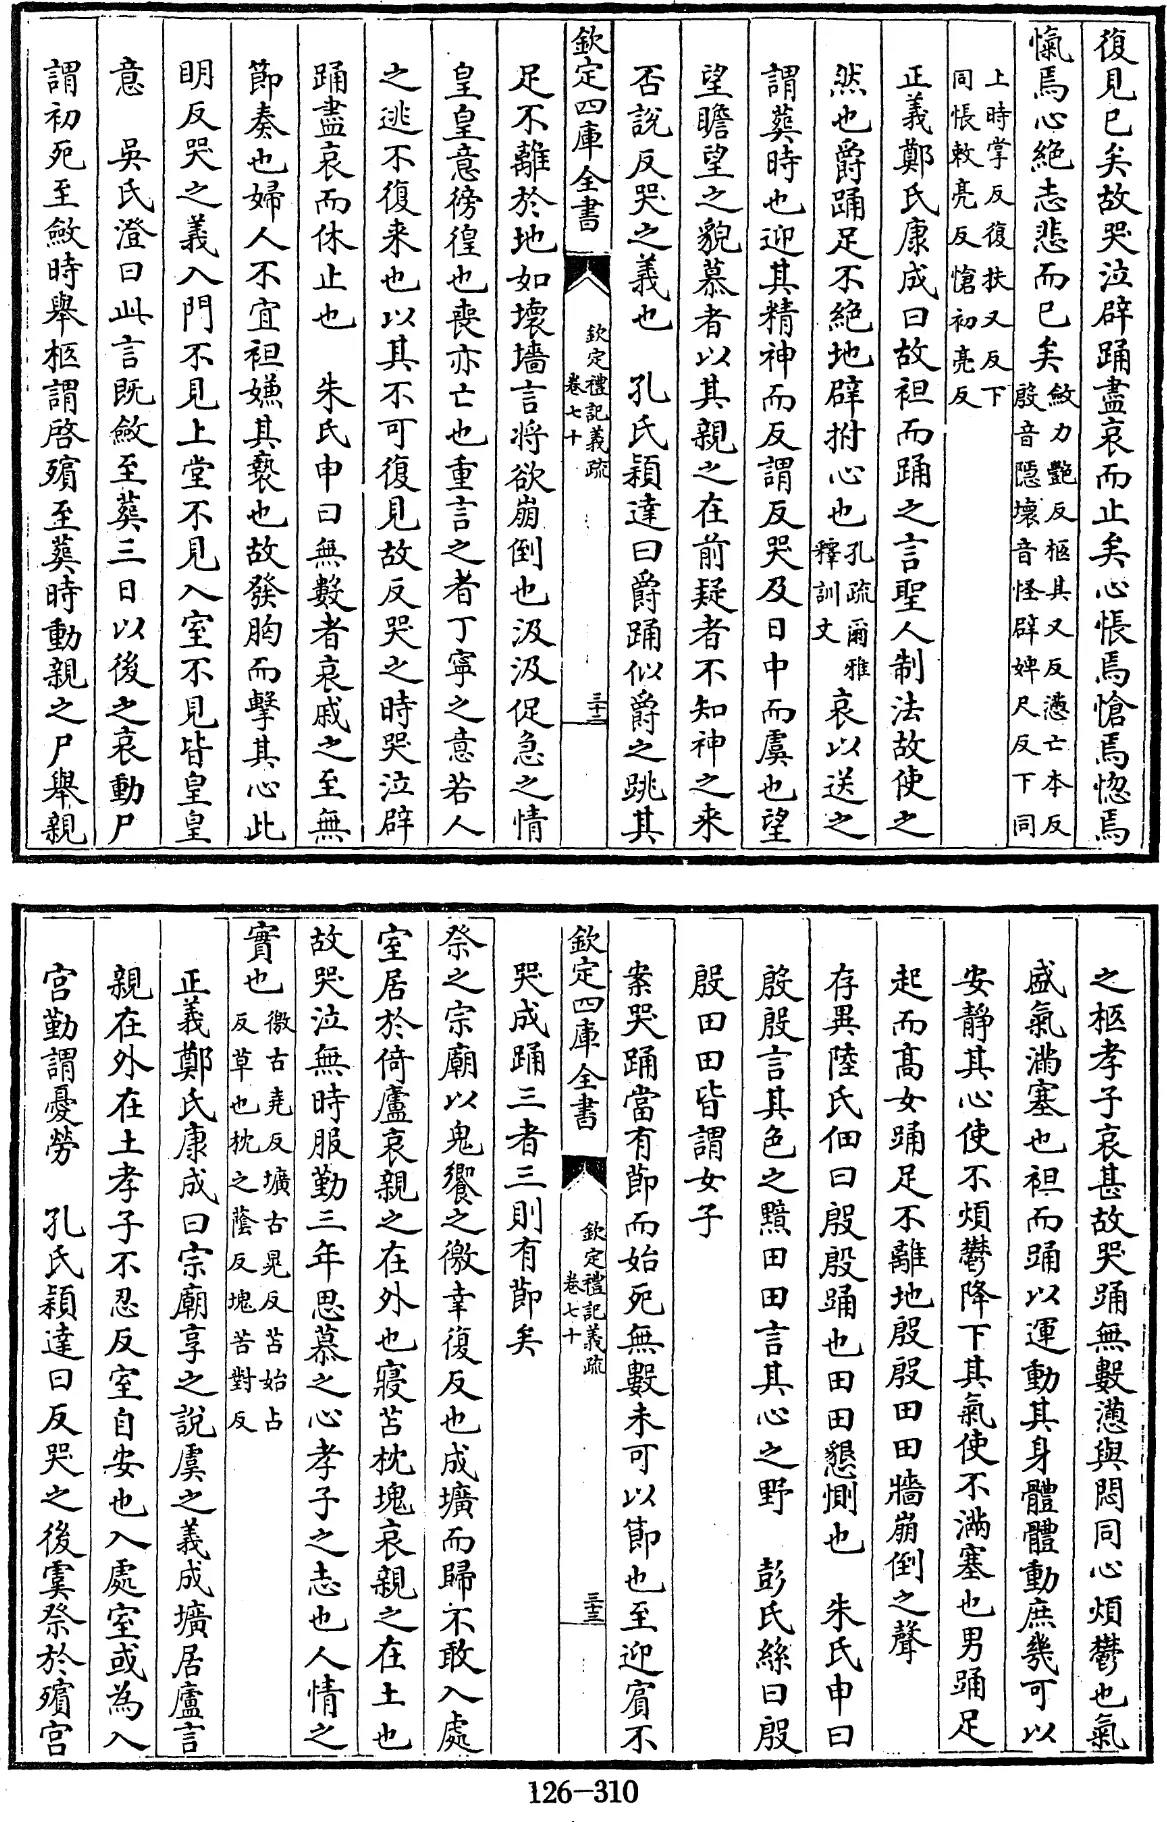 復見已矣故哭泣辟踊盡哀而止矣心悵焉愴焉惚焉
愾焉心絶志悲而已矣斂力豔反柩其又反懣亡本反殷音隠壞音怪辟婢尺反下同
上時掌反復扶又反下同悵敕亮反愴初亮反
正義鄭氏康成曰故袒而踊之言聖人制法故使之
然也爵踊足不絶地辟拊心也孔疏爾雅釋訓文哀以送之
謂葬時也迎其精神而反謂反哭及日中而虞也望
望瞻望之貌慕者以其親之在前疑者不知神之來
否說反哭之義也　孔氏穎達曰爵踊似爵之跳其
欽定四庫全書　欽定禮記義疏卷七十　三十二
足不離於地如壞墻言將欲崩倒也汲汲促急之情
皇皇意徬徨也喪亦亡也重言之者丁寧之意若人
之逃不復来也以其不可復見故反哭之時哭泣辟
踊盡哀而休止也　朱氏申曰無數者哀戚之至無
節奏也婦人不宜袒嫌其褻也故發胷而擊其心此
明反哭之義入門不見上堂不見入室不見皆皇皇
意　吳氏澄曰此言既斂至葬三日以後之哀動尸
謂初死至斂時舉柩謂啓殯至葬時動親之尸舉親
之柩孝子哀甚故哭踊無數懣與悶同心煩鬱也氣
盛氣滿塞也袒而踊以運動其身體體動庶幾可以
安靜其心使不煩鬱降下其氣使不滿塞也男踊足
起而髙女踊足不離地殷殷田田牆崩倒之聲
存異陸氏佃曰殷殷踊也田田懇惻也　朱氏申曰
殷殷言其色之黯田田言其心之野　彭氏絲曰殷
殷田田皆謂女子
案哭踊當有節而始死無數未可以節也至迎賓不
哭成踊三者三則有節矣
欽定四庫全書　欽定禮記義疏卷七十　三十三
祭之宗廟以鬼饗之徼幸復反也成壙而歸不敢入處
室居於倚廬哀親之在外也寢苫枕塊哀親之在土也
故哭泣無時服勤三年思慕之心孝子之志也人情之
實也徼古堯反壙古晃反苫始占反草也枕之蔭反塊苦對反
正義鄭氏康成曰宗廟享之說虞之義成壙居廬言
親在外在土孝子不忍反室自安也入處室或為入
宫勤謂憂勞　孔氏穎達曰反哭之後虞祭於殯宫
126-310